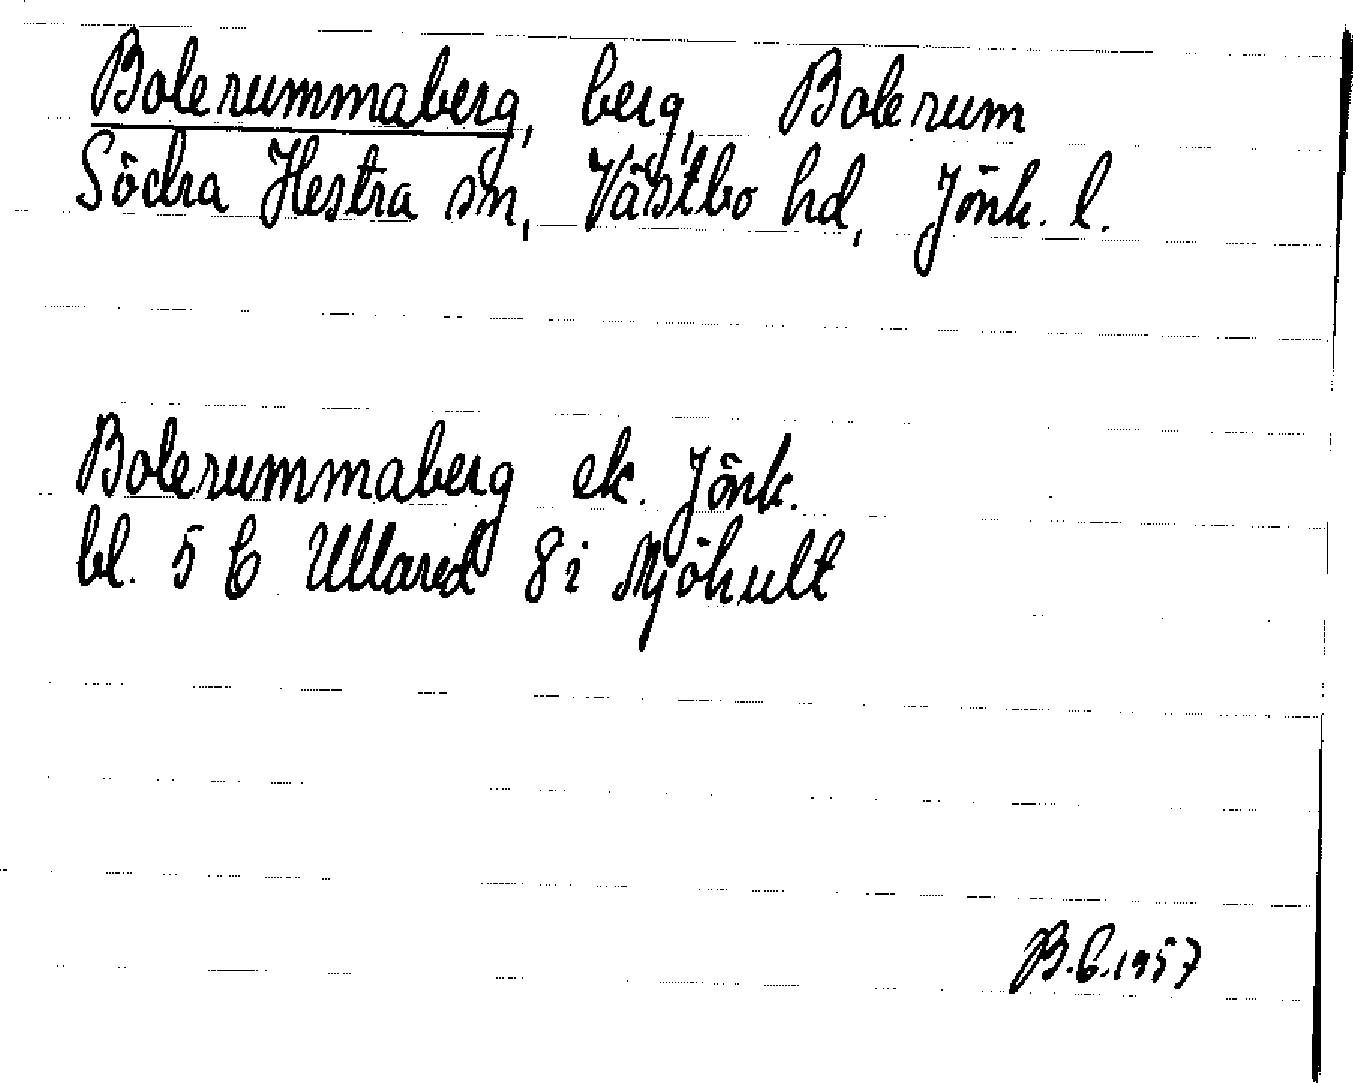 Bolerummaberg, berg, Bolerum
Södra Hestra sn, Västbo hd, Jönk. l.
Bolerummaberg ek. Jönk.
bl. 5 C Ullared 8 i Mjöhult
B.C.1957